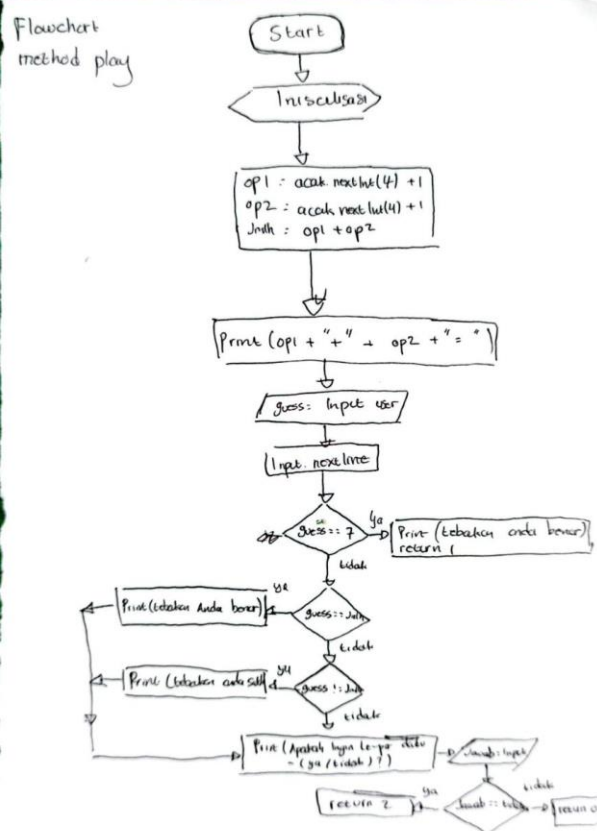 Flowchart
method play
Start
Inisialisasi
op1 = acak.nextInt(4) +1
op2 = acak.nextInt(4) +1
Jmlh = op1 + op2
Print (op1 + "+" + op2 + "= ")
guess = Input user
Input.nextLine
guess == 7
ya
Print (tebakan anda benar)
return 1
tidak
ya
Print (tebakan Anda benar)
guess == Jmlh
tidak
ya
Print (tebakan anda
guess != Jmlh
tidak
Print (Apakah ingin
- (ya / tidak)?)
Jawab = Input
ya
tidak
return 2
Jawab ==
return 0